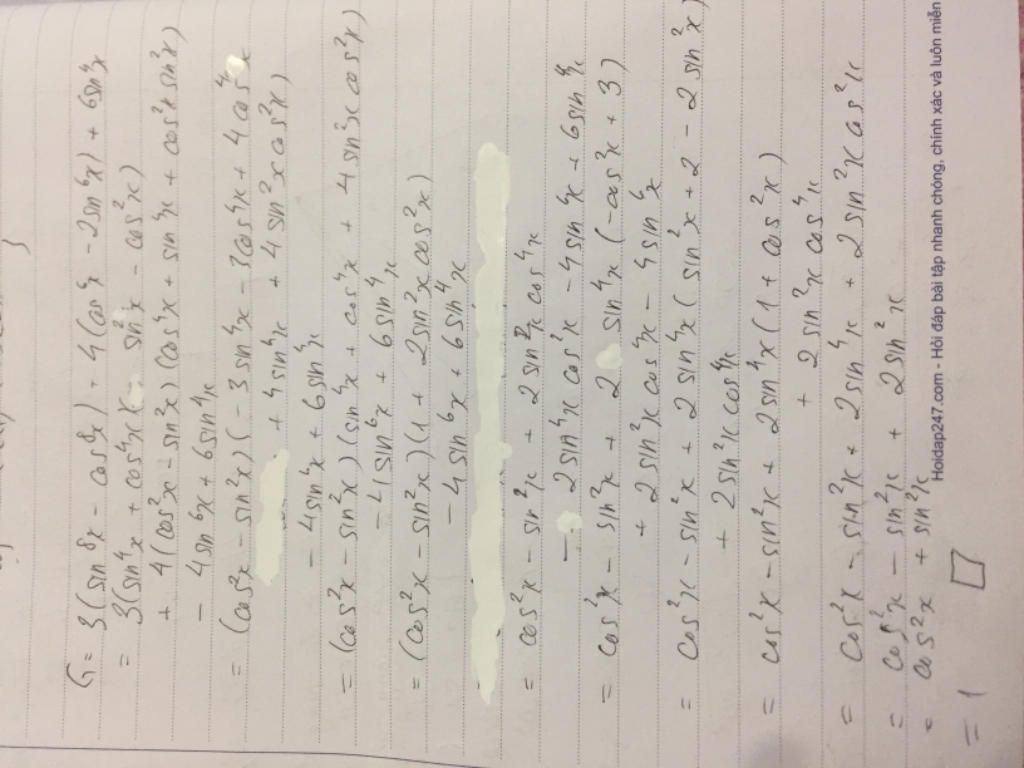 G = 3(sin⁸x - cos⁸x) + 4(cos⁶x - 2sin⁶x) + 6sin⁴x
= 3(sin⁴x + cos⁴x)(sin²x - cos²x)
+ 4(cos²x - sin²x)(cos⁴x + sin⁴x + cos²x sin²x)
- 4sin⁶x + 6sin⁴x
= (cos²x - sin²x)(-3sin⁴x - 3cos⁴x + 4cos⁴x
+ 4sin⁴x + 4sin²x cos²x)
- 4sin⁶x + 6sin⁴x
= (cos²x - sin²x)(sin⁴x + cos⁴x + 4sin²x cos²x)
- 4sin⁶x + 6sin⁴x
= (cos²x - sin²x)(1 + 2sin²x cos²x)
- 4sin⁶x + 6sin⁴x
= cos²x - sin²x + 2sin²x cos⁴x
- 2sin⁴x cos²x - 4sin⁶x + 6sin⁴x
= cos²x - sin²x + 2sin⁴x(-cos²x + 3)
+ 2sin²x cos⁴x - 4sin⁶x
= cos²x - sin²x + 2sin⁴x(sin²x + 2 - 2sin²x)
+ 2sin²x cos⁴x
= cos²x - sin²x + 2sin⁴x(1 + cos²x)
+ 2sin²x cos⁴x
= cos²x - sin²x + 2sin⁴x + 2sin²x cos²x
= cos²x - sin²x + 2sin²x
= cos²x + sin²x
= 1
Hoidap247.com - Hỏi đáp bài tập nhanh chóng, chính xác và luôn miễn